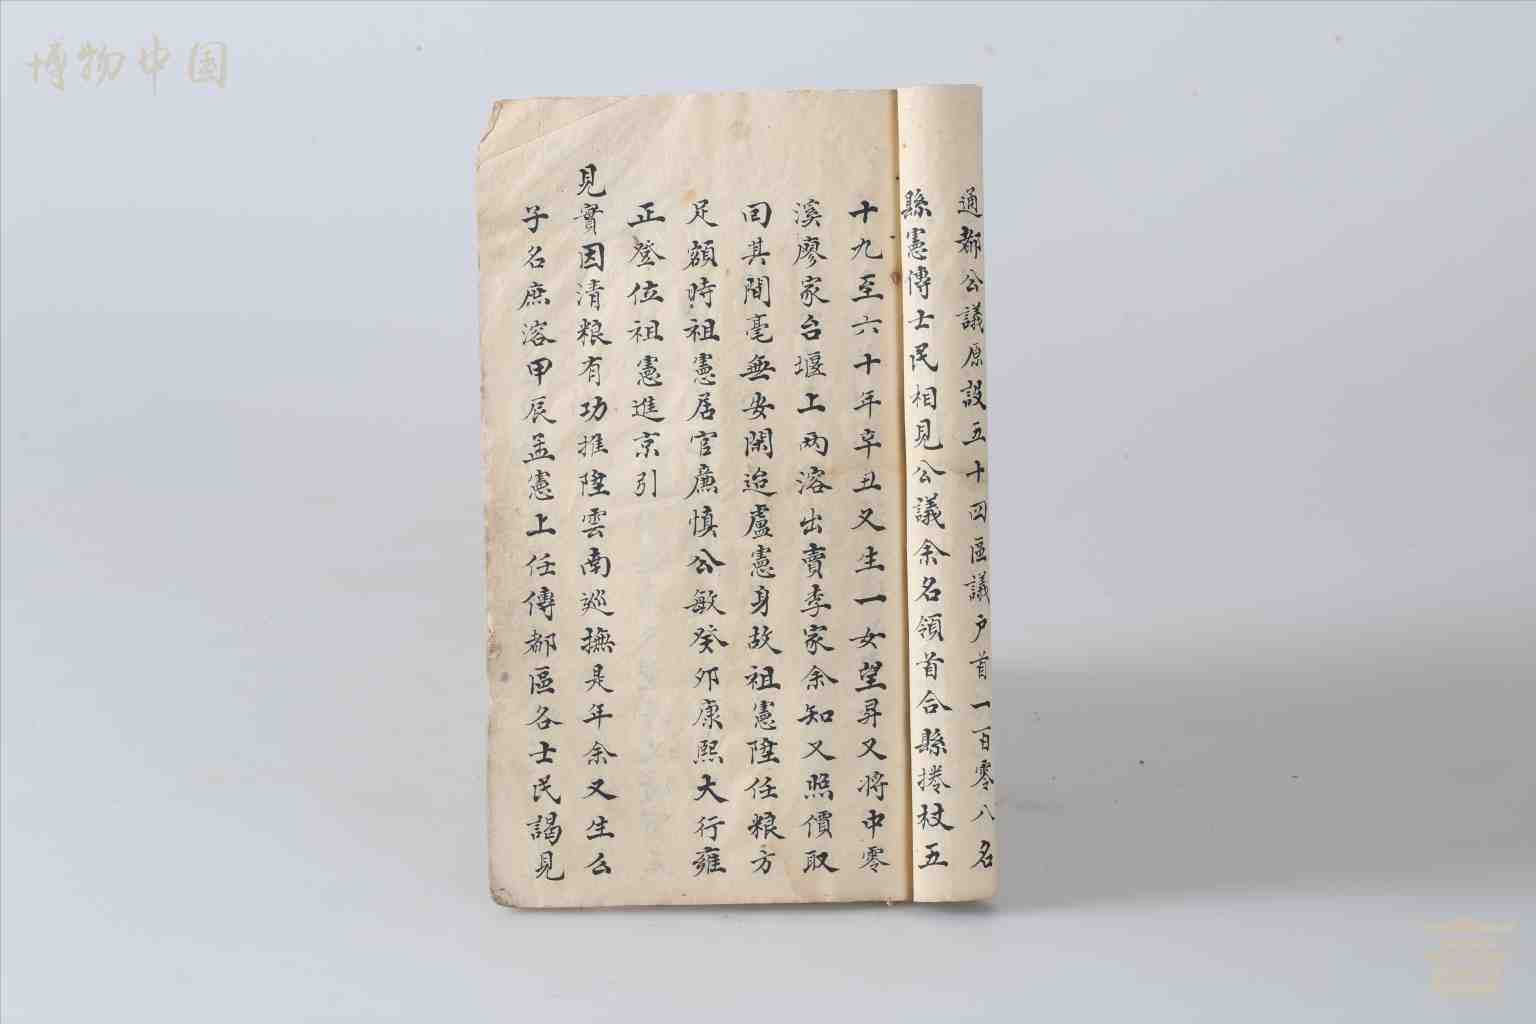 博物中国
通都公議原設五十四區議户首一百零八名
縣憲傳士民相見公議余名領首合縣捲杖五
十九至六十年辛丑又生一女望昇又将中零
溪廖家台堰上兩溶出賣李家余知又照價取
回其間毫無安閑迨盧憲身故祖憲陞任粮方
足額時祖憲居官廉慎公敏癸夘康熙大行雍
正登位祖憲進京引
見實因清粮有功推陞雲南巡撫是年余又生么
子名庶溶甲辰孟憲上任傳都區各士民謁見